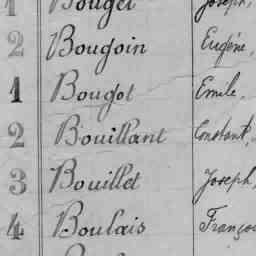 1 Bouget Joseph,
2 Bougoin Eugène,
1 Bougot Emile,
2 Bouillant Constant,
3 Bouillet Joseph,
4 Boulais Franço